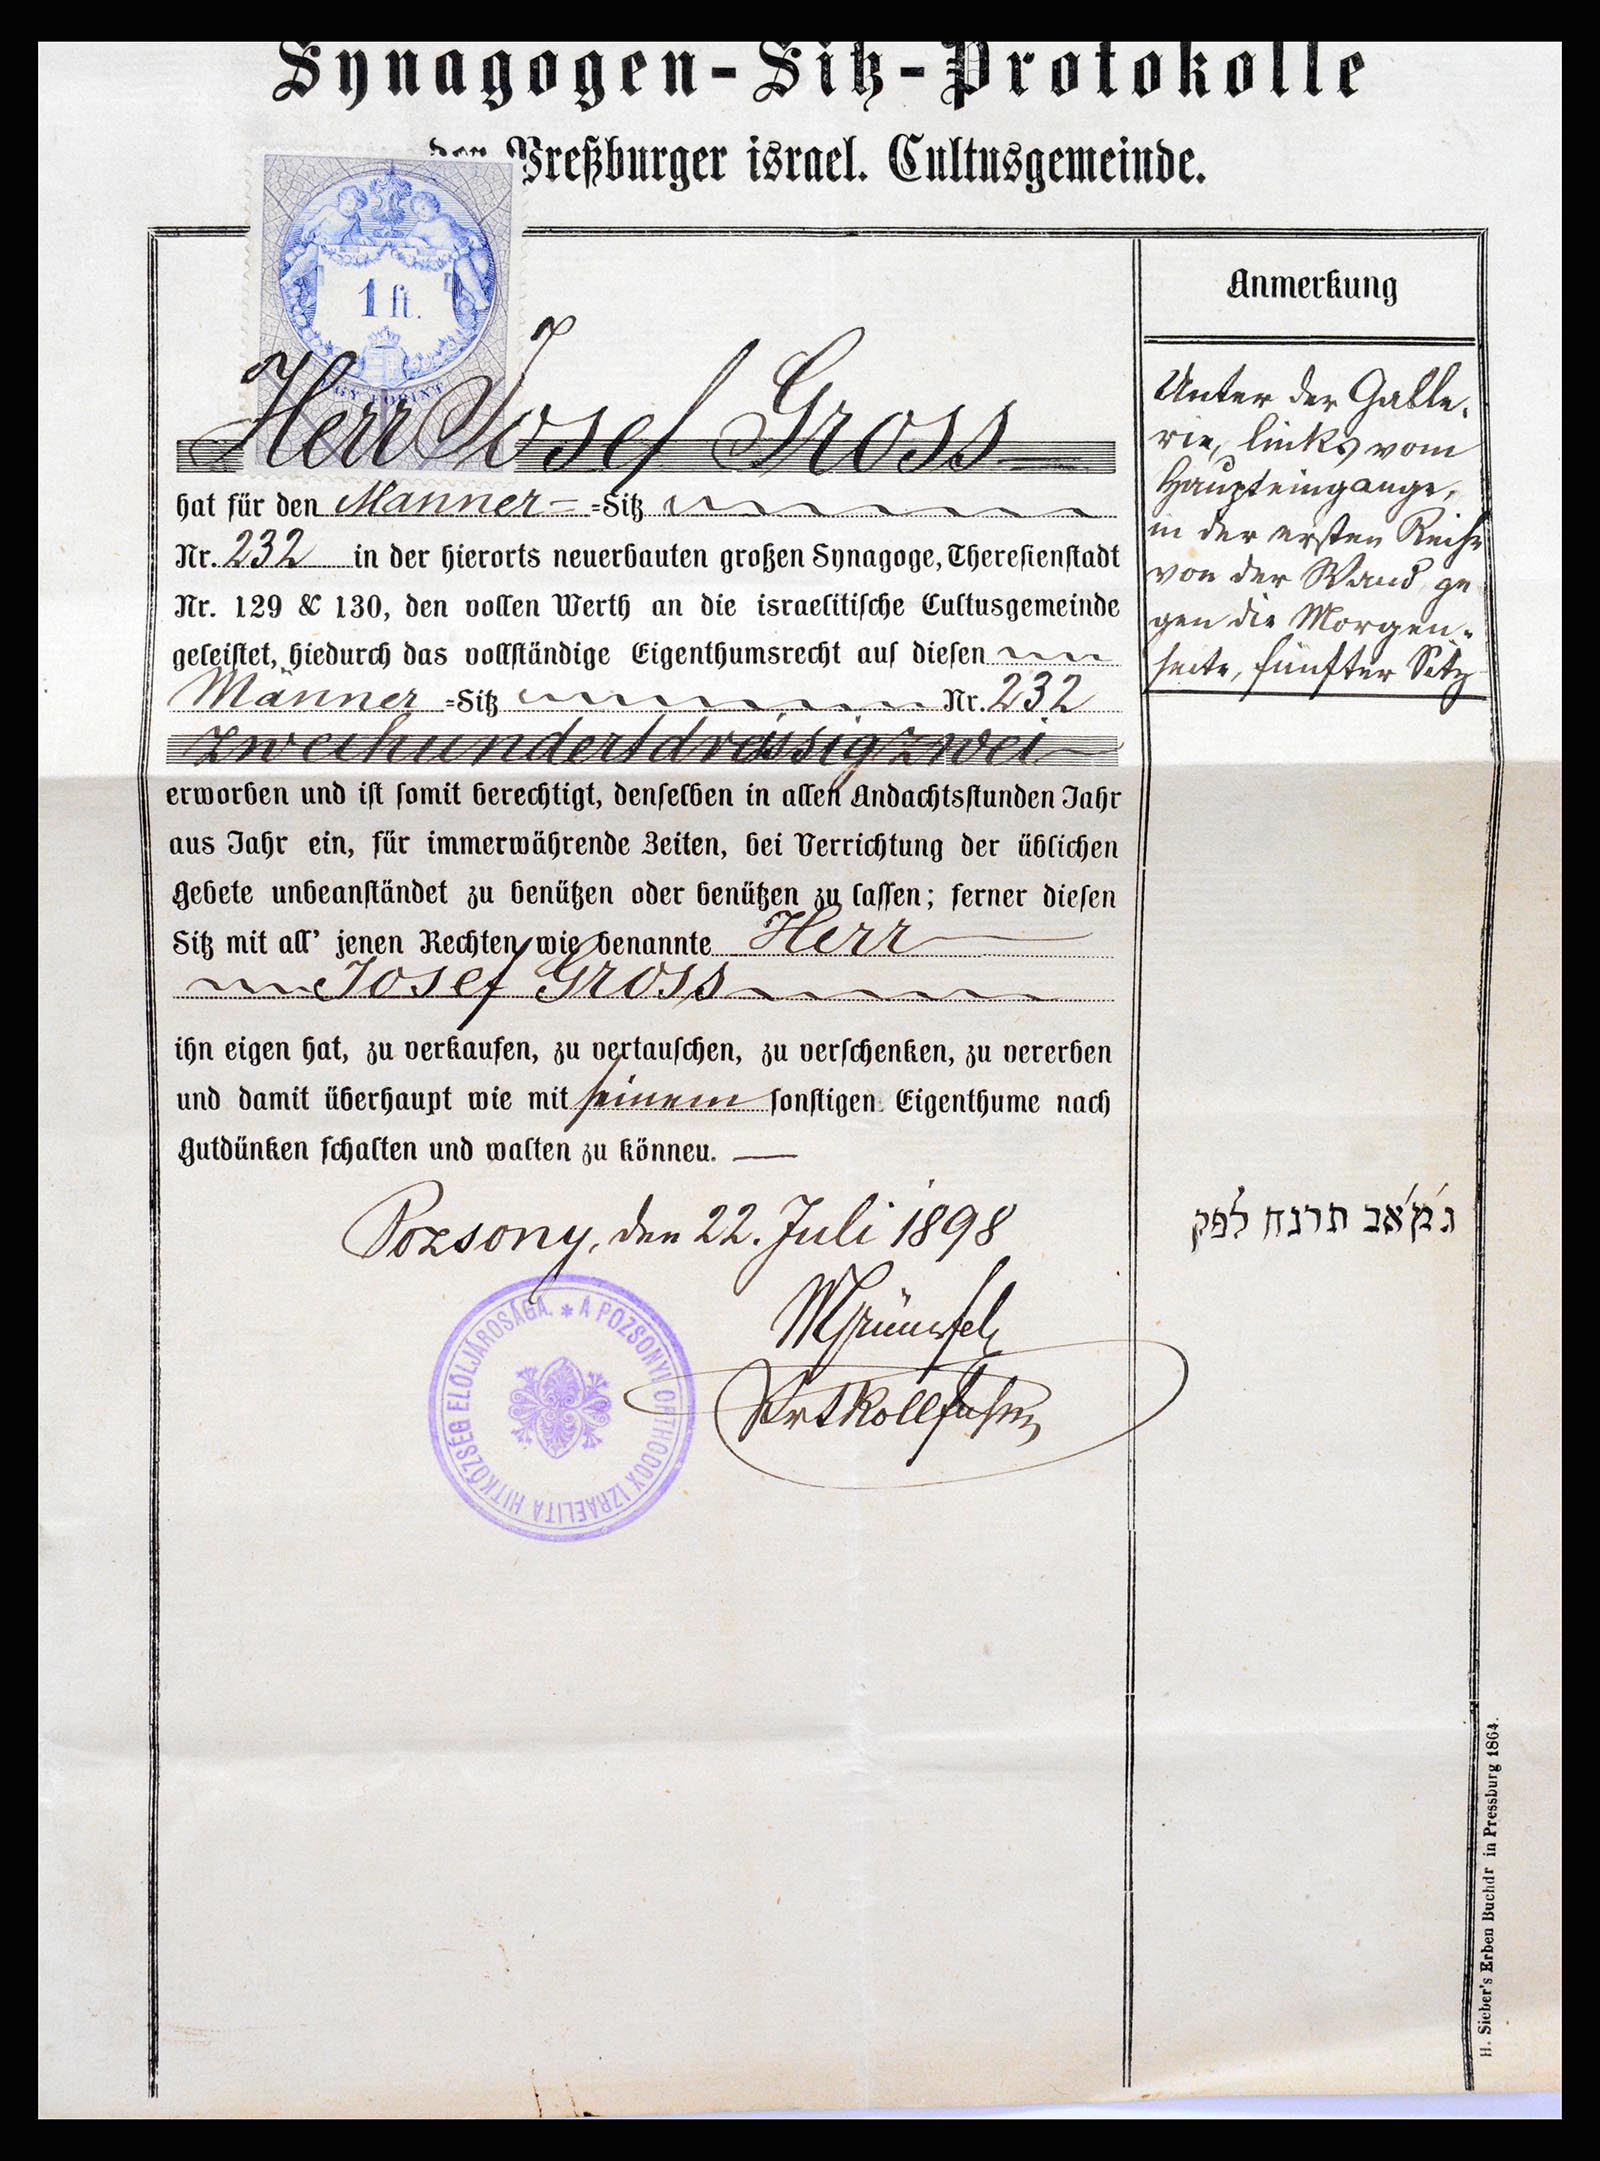 Synagogen-Sitz-Protokolle
der Preßburger israel. Cultusgemeinde.
1 ft.
EGY FORINT
Herr Josef Gross
hat für den Männer- =Sitz
Nr. 232 in der hierorts neuerbauten großen Synagoge, Theresienstadt
Nr. 129 & 130, den vollen Werth an die israelitische Cultusgemeinde
geleistet, hiedurch das vollständige Eigenthumsrecht auf diesen
Männer =Sitz Nr. 232
zweihundertdreissigzwei
erworben und ist somit berechtigt, denselben in allen Andachtsstunden Jahr
aus Jahr ein, für immerwährende Zeiten, bei Verrichtung der üblichen
Gebete unbeanständet zu benützen oder benützen zu lassen; ferner diesen
Sitz mit all' jenen Rechten, wie benannte Herr
Josef Gross
ihn eigen hat, zu verkaufen, zu vertauschen, zu verschenken, zu vererben
und damit überhaupt wie mit seinem sonstigen Eigenthume nach
Gutdünken schalten und walten zu könneu.
Pozsony, den 22. Juli 1898
A POZSONYI ORTHODOX IZRAELITA HITKÖZSÉG ELÖLJÁROSÁGA.
Anmerkung
Unter der Galle-
rie, links vom
Haupteingange,
in der ersten Reihe
von der Wand ge
gen die Morgen-
seite, fünfter Sitz
ג' מ'אב תרנח לפק
H. Sieber's Erben Buchdr in Pressburg 1864.